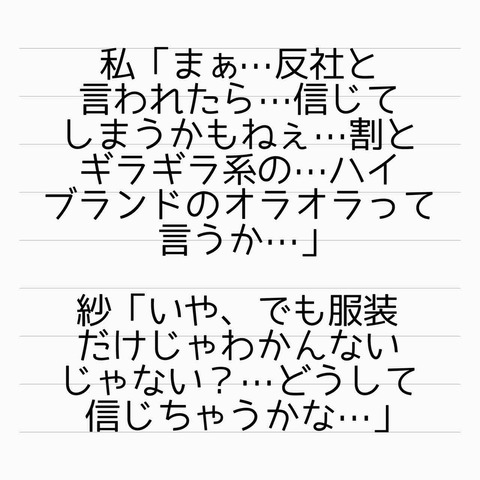 私「まぁ…反社と
言われたら…信じて
しまうかもねぇ…割と
ギラギラ系の…ハイ
ブランドのオラオラって
言うか…」
紗「いや、でも服装
だけじゃわかんない
じゃない？…どうして
信じちゃうかな…」